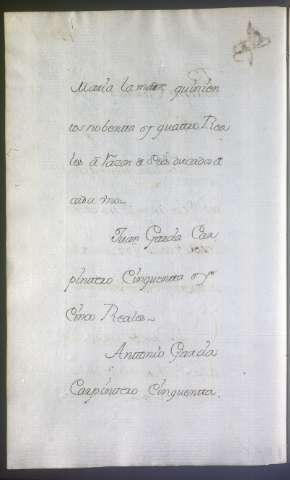 Maria la mar quinien
tos nobenta y quattro Rea
les â razon de Seis ducados â
cada uno
Juan Garcia Car
pintero Cinquenta y
Cinco Reales
Antonio Garcia
Carpintero Cinquenta